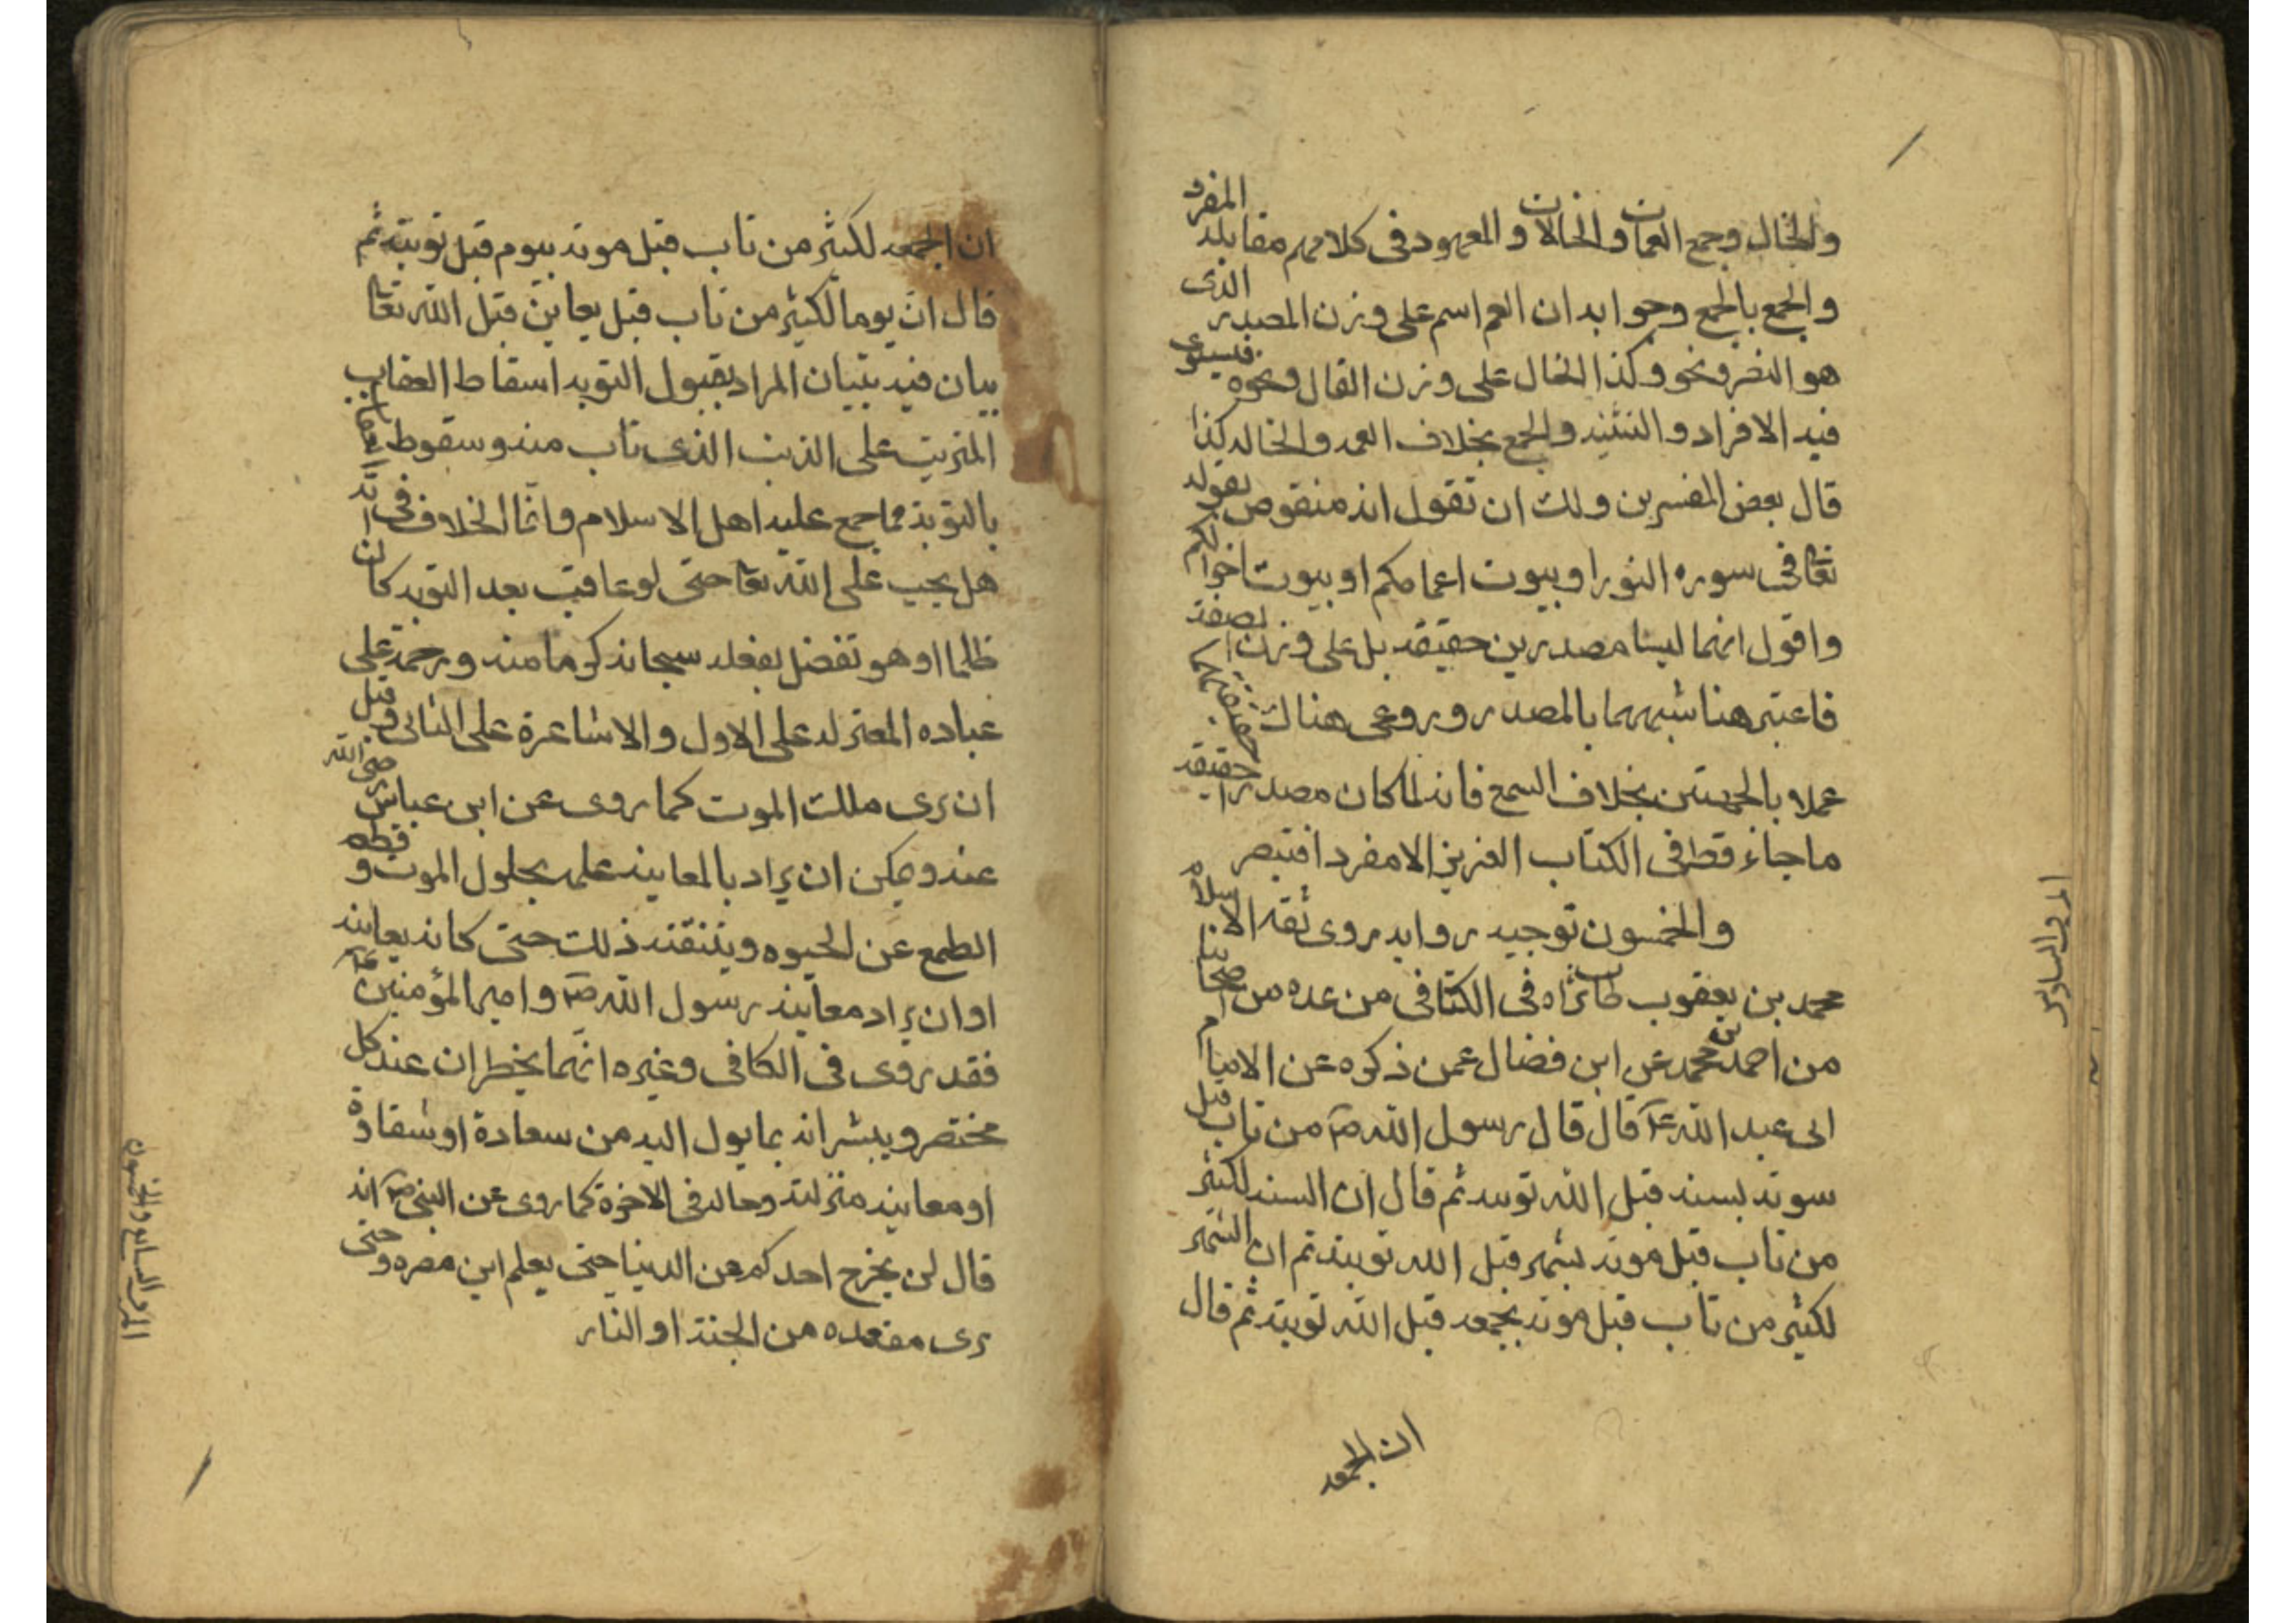 والخال وجمع العمات والخالات والمعهود فى كلامهم مقابله المفرد
والجمع بالجمع وجوابه ان العم اسم على وزن المصدر الذى
هو النصر ونحوه وكذا الخال على وزن القال ونحوه فيستوى
فيه الافراد والتثنيه والجمع بخلاف العمه والخاله كذا
قال بعض المفسرين ولك ان تقول انه منقوص بقوله
تعا فى سوره النور او بيوت اعمامكم او بيوت اخوالكم
واقول انهما ليسا مصدرين حقيقه بل على وزن
فاعتبر هنا شبههما بالمصدر وروعى هناك
عملا بالجهتين بخلاف السمع فانه لما كان مصدرا حقيقه
ما جاء قط فى الكتاب العزيز الا مفردا فتبصر
والخمسون توجيه روايه روى ثقه الاسلام
محمد بن يعقوب طاب ثراه فى الكافى من عده من اصحابنا
من احمد بن محمد عن ابن فضال عمن ذكره عن الامام
ابى عبد الله ع قال قال رسول الله ص من تاب قبل
موته بسنه قبل الله توبته ثم قال ان السنه لكثير
من تاب قبل موته بشهر قبل الله توبته ثم ان الشهر
لكثير من تاب قبل موته بجمعه قبل الله توبته ثم قال
ان الجمعه
ان الجمعه لكثير من تاب قبل موته بيوم قبل توبته ثم
قال ان يوما لكثير من تاب قبل يعاين قبل الله تعا
بيان فيه تبيان المراد بقبول التوبه اسقاط العقاب
المترتب على الذنب الذى تاب منه وسقوط العقاب
بالتوبه مما جمع عليه اهل الاسلام وانما الخلاف فى انه
هل يجب على الله تعا حتى لو عاقب بعد التوبه كان
ظلما او هو تفضل بفعله سبحانه كرما منه ورحمة على
عباده المعتزله على الاول والاشاعرة على الثانى وقبل
ان يرى ملك الموت كما روى عن ابن عباس رضى الله
عنه ويمكن ان يراد بالمعاينه علمه بحلول الموت وقطعه
الطمع عن الحيوه وتيقنه ذلك حتى كانه يعاينه
او ان يراد معاينه رسول الله ص وامير المؤمنين ع
فقد روى فى الكافى وغيره انهما يحضران عند كل
محتضر ويبشرانه بما يول اليه من سعادة او شقاوة
او معاينه منزلته وحاله فى الاخرة كما روى عن النبى ص انه
قال لن يخرج احدكم عن الدنيا حتى يعلم اين مصيره وحتى
يرى مقعده من الجنة او النار